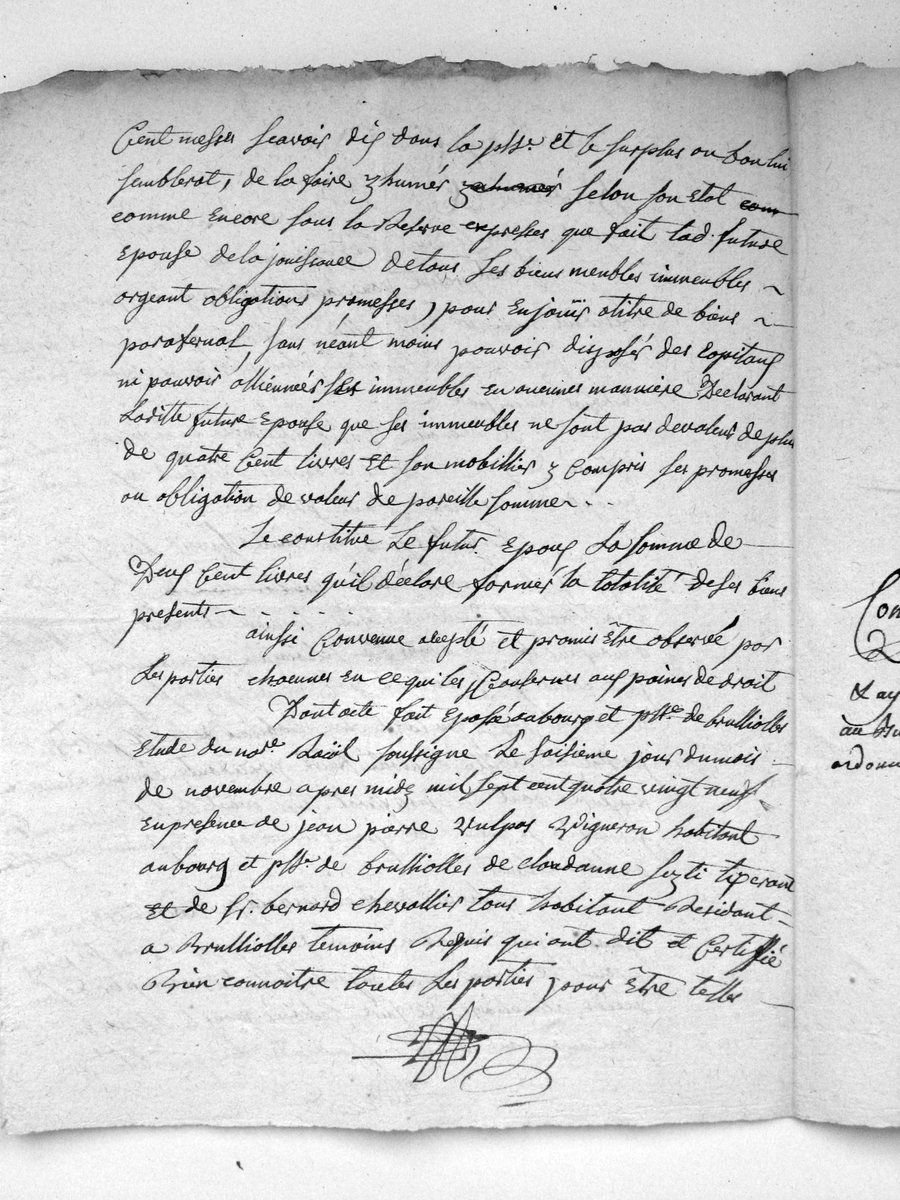 Cent messes scavoir dix dans la psse. et le surplus ou bon lui
semblerat, de la faire yhumér yhumér selon son Etat com
comme Encore sous la Reserve expresses que fait lad. future
Epouse de la jouissance detous ses biens meubles immeubles ~
argeant obligations promesses, pour Enjoüir atitre de biens ~
parafernal, sans néant moins pouvoir disposér des Capitaux
ni pouvoir alliennér ses immeubles en aucunes manniere Declarant
Laditte future Epouse que ses immeubles ne sont pas devaleur de plus
de quatre Cent livres et son mobillier y Compris ses promesses
ou obligation de valeur de pareille somme - . .
Se constitue Le futur Epoux La somme de
Deux Cent livres qu'il déclare formér la totalité de ses biens
presents ~ . . . . .
ainsi Convenue acepté et promis Être observé par
Les parties chacunes en ce qui les Consernes aux peines de droit
Dont acte fait Epassé aubourg et psse. de brulliolles
Etude du nore. soussigne Le saisieme jour dumois
de novembre apres midy mil sept cent quatre vingt neuf
Enpresence de jean pierre Vulpas Vigneron habitant
aubourg et psse. de brulliolles de claudanne tixerant
Et de fr. bernard chevallier tous habitant Residant
a Brulliolles temoins Requis qui ont dit et Certiffié
Bien connoitre toutes Les parties pour Être telles
Con
Lay
au
ordonn